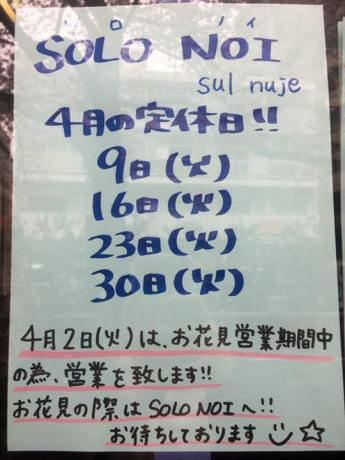 ソロ ノイ
SOLO NOI
sul nuje
4月の定休日!!
9日(火)
16日(火)
23日(火)
30日(火)
4月2日(火)は、お花見営業期間中
の為、営業を致します!!
お花見の際はSOLO NOIへ!!
お待ちしております